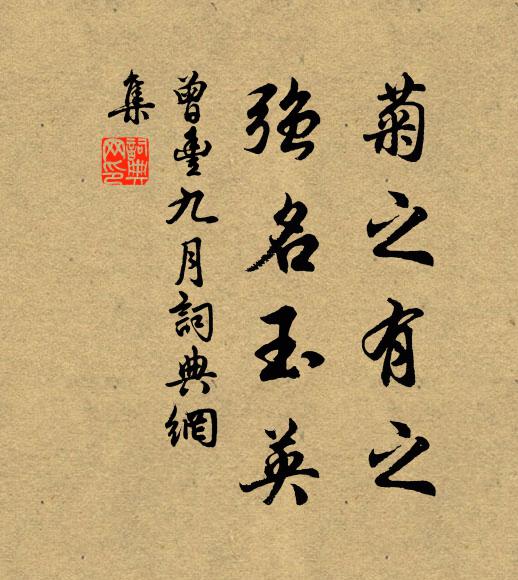 菊之有之
強名玉英
曾豐九月詞典網
集
詞典
網印